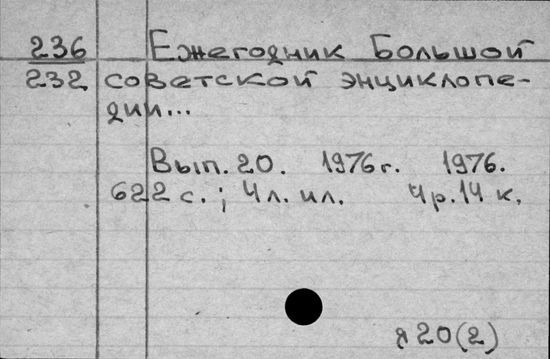 236 Ежегодник Большой
232 советской энциклопе-
дии...
Вып. 20. 1976 г. 1976.
622 с.; 4 л. ил. 4 р. 14 к.
я20(2)